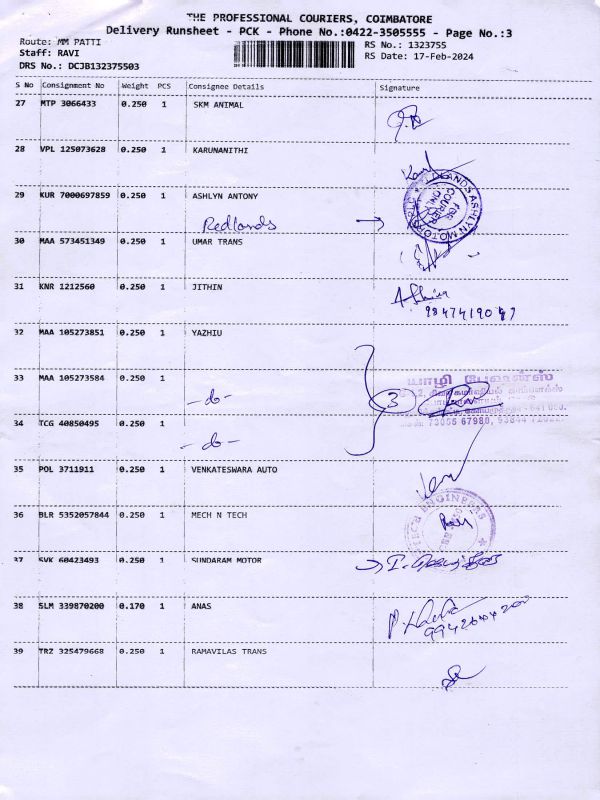 THE PROFESSIONAL COURIERS, COIMBATORE
Delivery Runsheet - PCK - Phone No.:0422-3505555 - Page No.:3
Route: MM PATTI RS No.: 1323755
Staff: RAVI RS Date: 17-Feb-2024
DRS No.: DCJB132375503
S No Consignment No Weight PCS Consignee Details Signature
27 MTP 3066433 0.250 1 SKM ANIMAL
28 VPL 125073628 0.250 1 KARUNANITHI
29 KUR 7000697859 0.250 1 ASHLYN ANTONY
Redlands
30 MAA 573451349 0.250 1 UMAR TRANS
31 KNR 1212560 0.250 1 JITHIN
9847419047
32 MAA 105273851 0.250 1 YAZHIU
33 MAA 105273584 0.250 1
-do- 3
யாழி பேஷன்ஸ்
34 TCG 40850495 0.250 1
-do-
35 POL 3711911 0.250 1 VENKATESWARA AUTO
36 BLR 5352057844 0.250 1 MECH N TECH
ENGINEERS
37 SVK 60423493 0.250 1 SUNDARAM MOTOR
38 SLM 339870200 0.170 1 ANAS
39 TRZ 325479668 0.250 1 RAMAVILAS TRANS